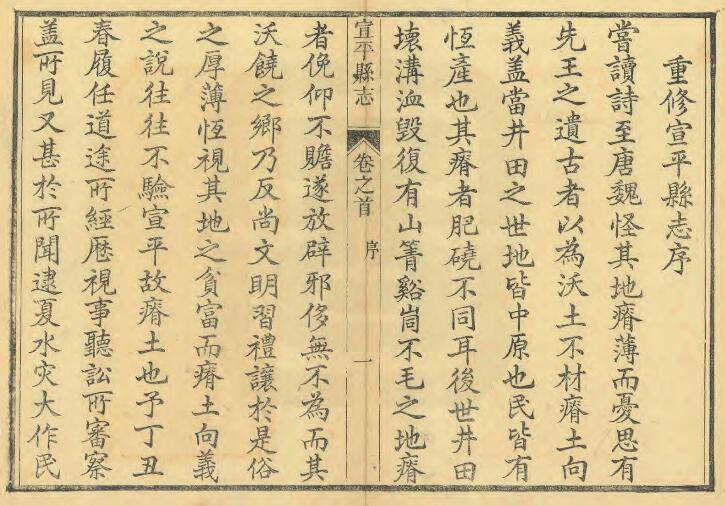 重修宣平縣志序
嘗讀詩至唐魏怪其地瘠薄而憂思有
先王之遺古者以為沃土不材瘠土向
義盖當井田之世地皆中原也民皆有
恆產也其瘠者肥磽不同耳後世井田
壞溝洫毀復有山箐谿峝不毛之地瘠
宣平縣志
卷之首
序
一
者俛仰不贍遂放辟邪侈無不為而其
沃饒之鄉乃反尚文明習禮讓於是俗
之厚薄恆視其地之貧富而瘠土向義
之說往往不驗宣平故瘠土也予丁丑
春履任道途所經歷視事聽訟所審察
盖所見又甚於所聞逮夏水灾大作民